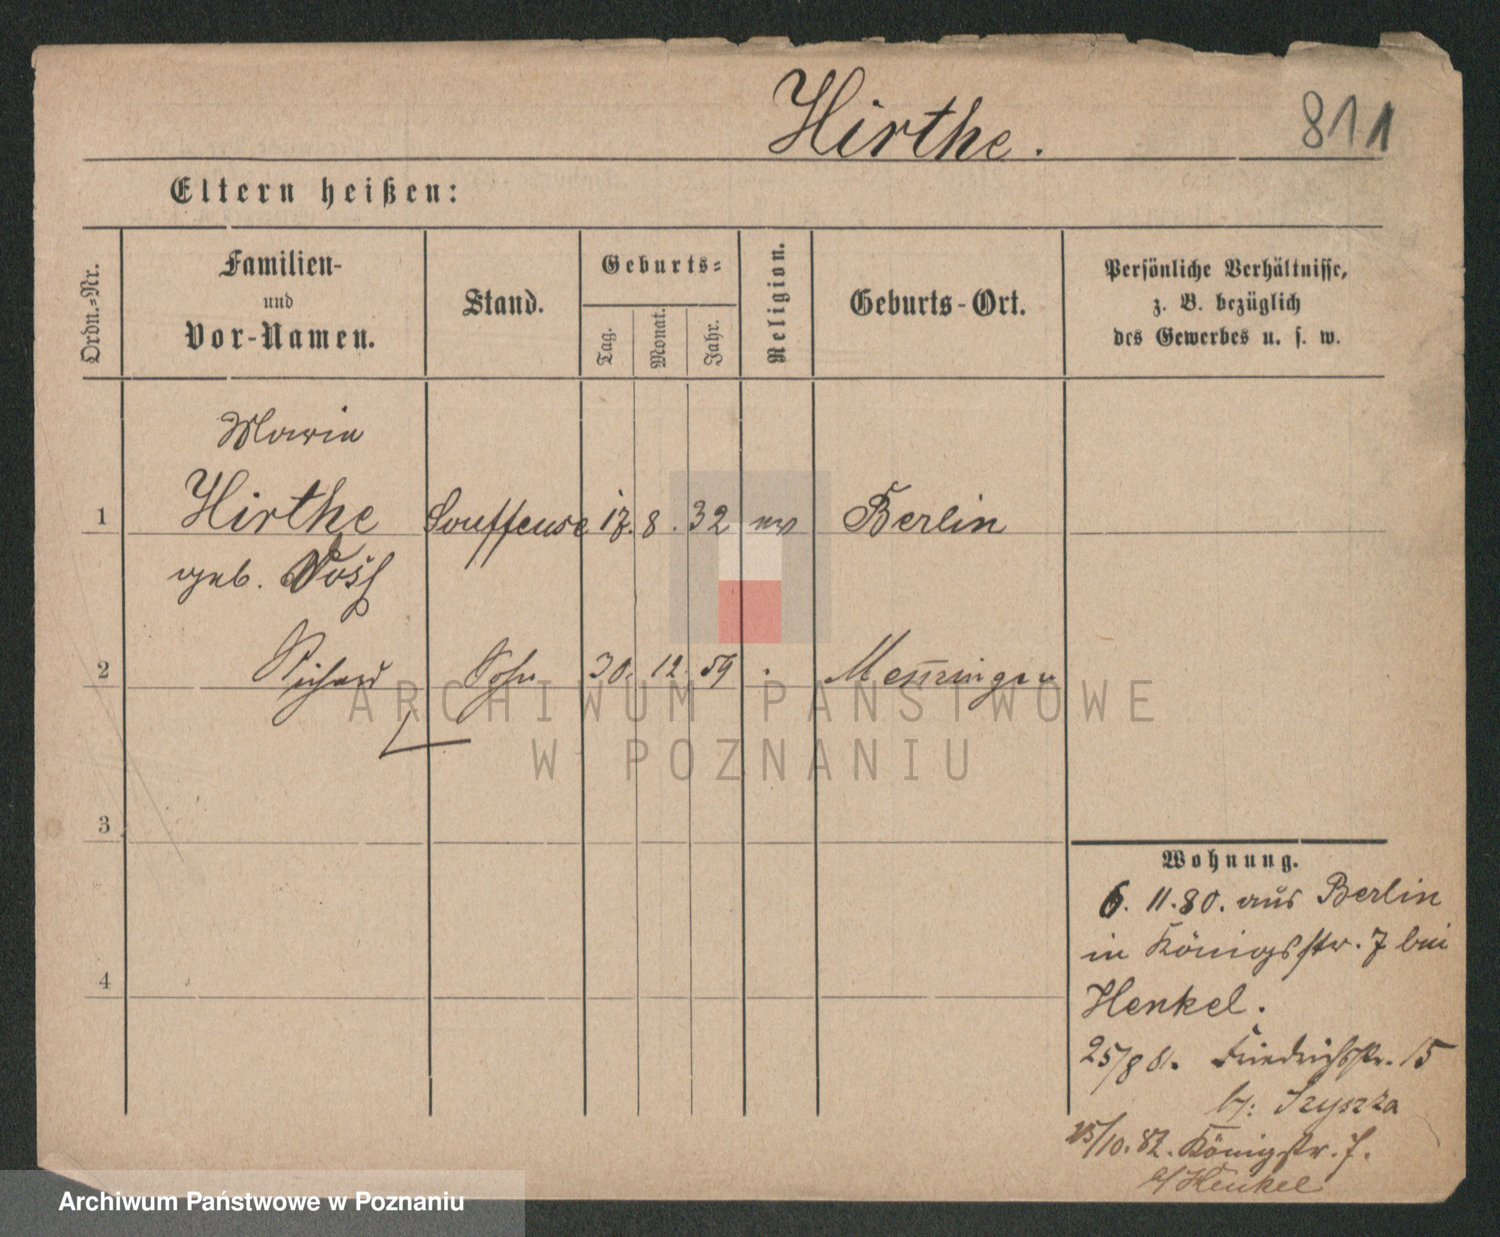 Hirthe.
811
Eltern heißen:
Ordn.-Nr.
Familien-
und
Vor-Namen.
Stand.
Geburts-
Tag.
Monat.
Jahr.
Religion.
Geburts-Ort.
Persönliche Verhältnisse,
z. B. bezüglich
des Gewerbes u. s. w.
Marie
1 Hirthe Souffleuse 17. 8. 32 ev Berlin
geb. Voß
2 Richard Sohn 30. 12. 59
3
4
Wohnung.
6. 11. 80. aus Berlin
in Königsstr. 7 bei
Henkel.
25/8 81. Friedrichsstr. 15
b/: Szyszka
15/10. 82. Königstr. 7.
b/Henkel
ARCHIWUM PAŃSTWOWE
W POZNANIU
Archiwum Państwowe w Poznaniu